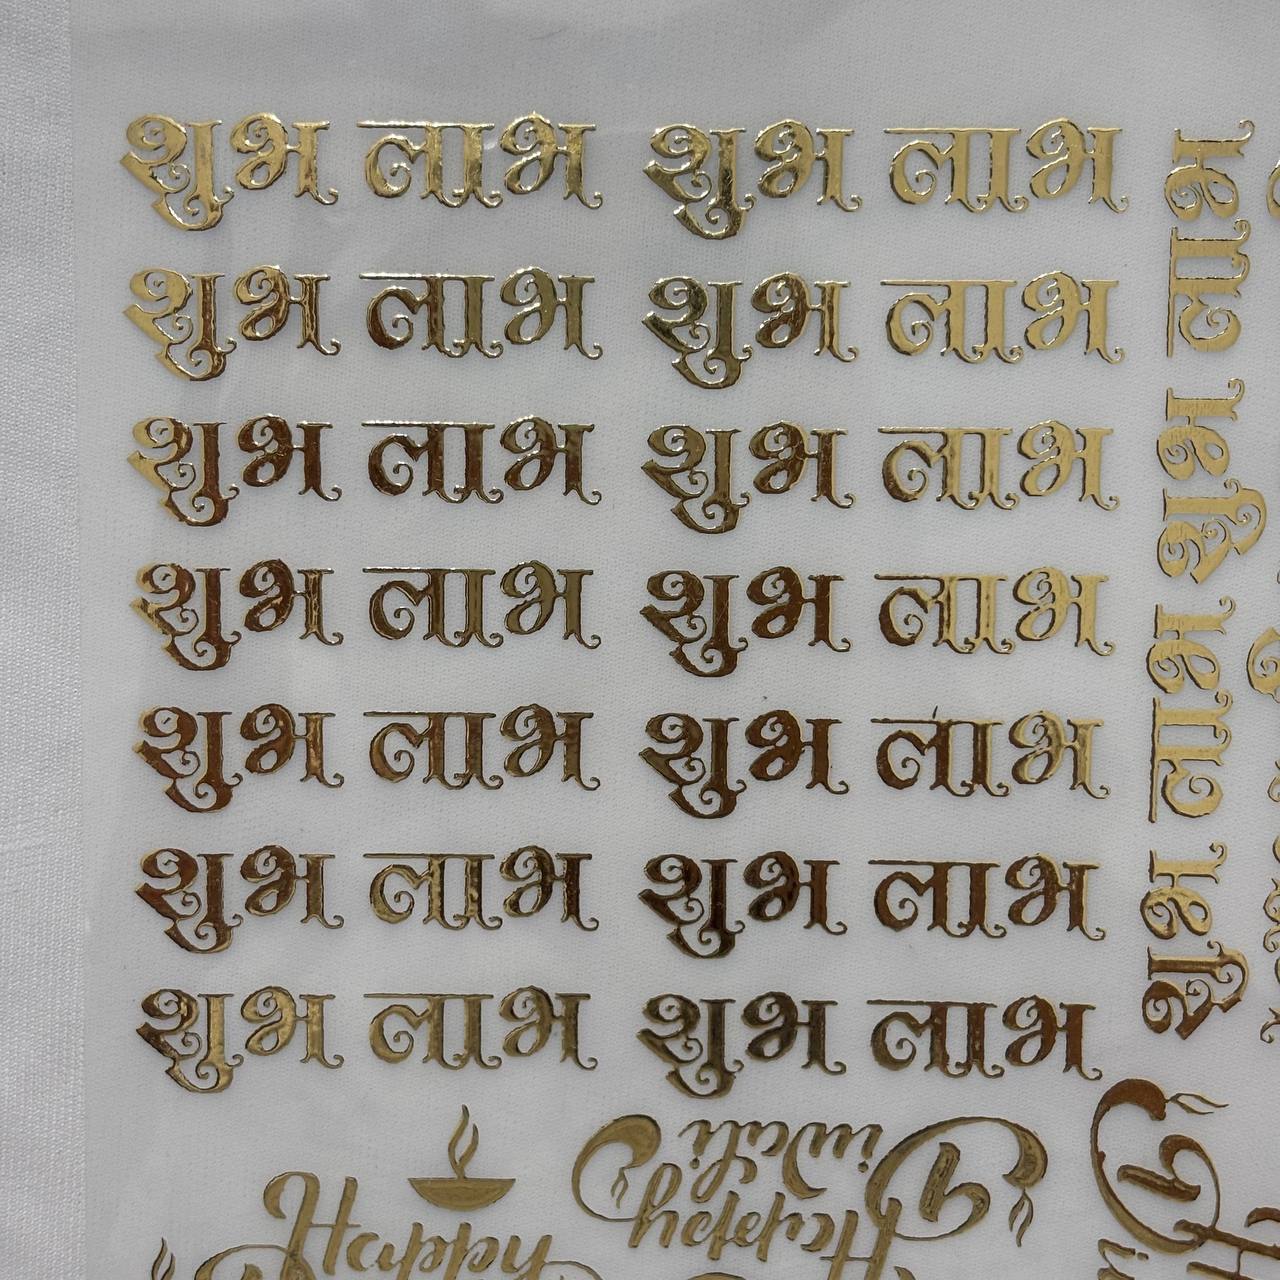 शुभ लाभ शुभ लाभ
शुभ लाभ शुभ लाभ
शुभ लाभ शुभ लाभ
शुभ लाभ शुभ लाभ
शुभ लाभ शुभ लाभ
शुभ लाभ शुभ लाभ
शुभ लाभ शुभ लाभ
शुभ लाभ
शुभ लाभ
Happy
Happy
Diwali